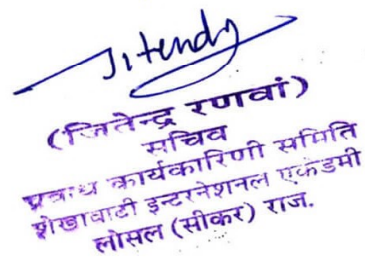 Jitendr
(जितेन्द्र रणवां)
सचिव
प्रबन्ध कार्यकारिणी समिति
शेखावाटी इन्टरनेशनल एकेडमी
लोसल (सीकर) राज.